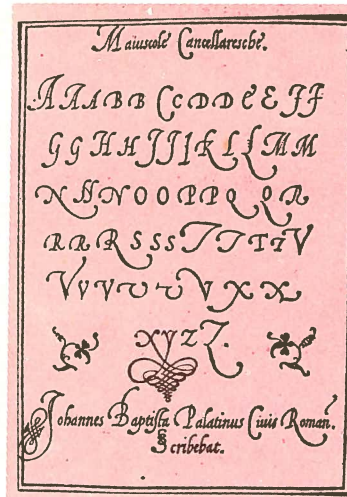 Maiuscole Cancellaresche.
A A A B B C C D D E E F F
G G H H I I I K L L M M
N N N O O P P Q Q R
R R R S S S T T T T V
V V V V V V X X
X Y Z Z.
Johannes Baptista Palatinus Ciuis Roman̄.
Scribebat.